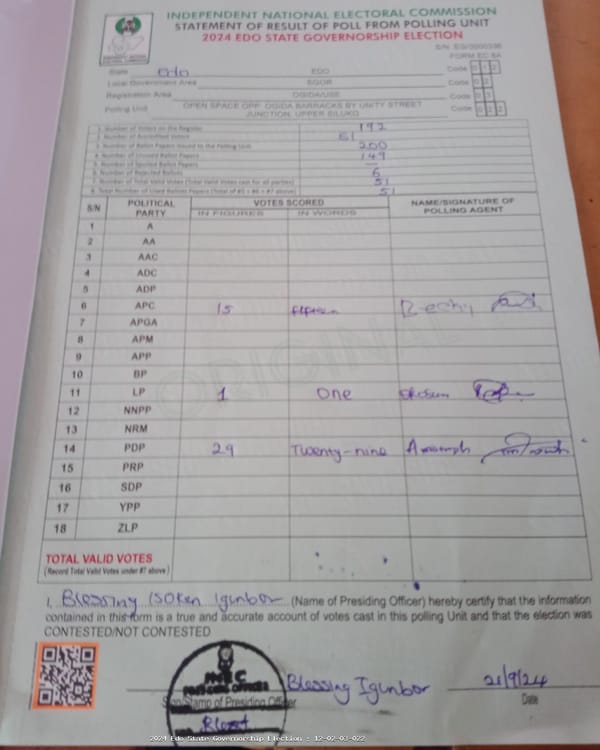 INDEPENDENT NATIONAL ELECTORAL COMMISSION
STATEMENT OF RESULT OF POLL FROM POLLING UNIT
2024 EDO STATE GOVERNORSHIP ELECTION
FORM EC 8A
State Edo EDO Code 1 2
Local Government Area EGOR Code 0
Registration Area OGIDA/USE Code 0 3
Polling Unit OPEN SPACE OPP. OGIDA BARRACKS BY UNITY STREET JUNCTION, UPPER SILUKO Code 0 2 2
1. Number of Voters on the Register 192
2. Number of Accredited Voters 51
3. Number of Ballot Papers Issued to the Polling Unit 200
4. Number of Unused Ballot Papers 149
5. Number of Spoiled Ballot Papers —
6. Number of Rejected Ballots 6
7. Number of Total Valid Votes (Total Valid Votes cast for all parties) 51
8. Total Number of Used Ballots Papers (Total of #5 + #6 + #7 above) 51
S/N POLITICAL PARTY VOTES SCORED NAME/SIGNATURE OF POLLING AGENT
IN FIGURES IN WORDS
1 A
2 AA
3 AAC
4 ADC
5 ADP
6 APC 15
7 APGA
8 APM
9 APP
10 BP
11 LP 1 one
12 NNPP
13 NRM
14 PDP 29 Twenty-nine
15 PRP
16 SDP
17 YPP
18 ZLP
ORIGINAL
TOTAL VALID VOTES
(Record Total Valid Votes under #7 above)
I, Blessing Isoken Igunbor (Name of Presiding Officer) hereby certify that the information
contained in this form is a true and accurate account of votes cast in this polling Unit and that the election was
CONTESTED/NOT CONTESTED
INEC
Blessing Igunbor 21/9/24
Sign/Stamp of Presiding Officer Date
2024 Edo State Governorship Election : 12-02-03-022